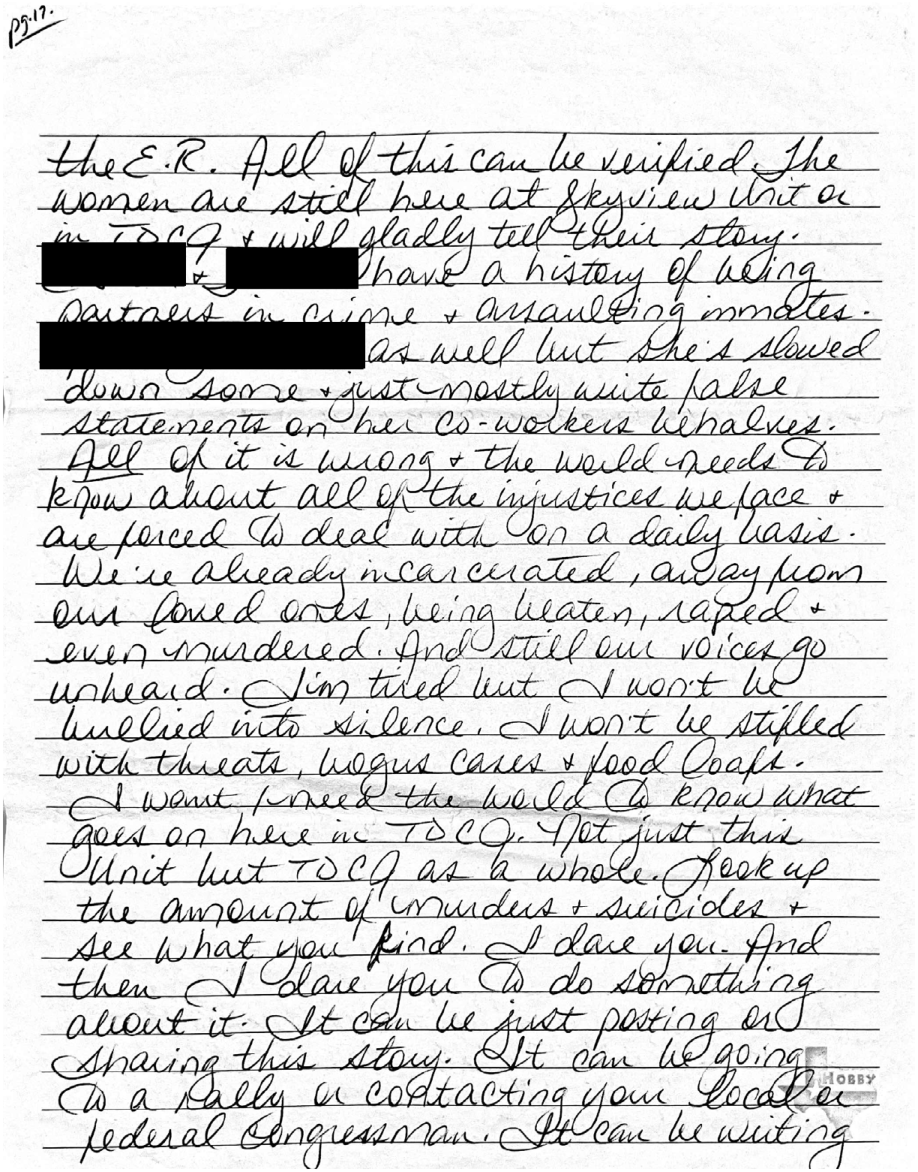 pg.17.
the E.R. All of this can be verified. The
women are still here at Skyview Unit or
in TDCJ & will gladly tell their story.
& have a history of being
partners in crime & assaulting inmates.
as well but she's slowed
down some & just mostly write false
statements on her co-workers behalves.
All of it is wrong & the world needs to
know about all of the injustices we face &
are forced to deal with on a daily basis.
We're already incarcerated, away from
our loved ones, being beaten, raped &
even murdered. And still our voices go
unheard. I'm tired but I won't be
bullied into silence. I won't be stifled
with threats, bogus cases & food loafs.
I want/need the world to know what
goes on here in TDCJ. Not just this
Unit but TDCJ as a whole. Look up
the amount of murders & suicides &
see what you find. I dare you. And
then I dare you to do something
about it. It can be just posting or
sharing this story. It can be going
HOBBY
to a rally or contacting your local or
federal Congressman. It can be writing